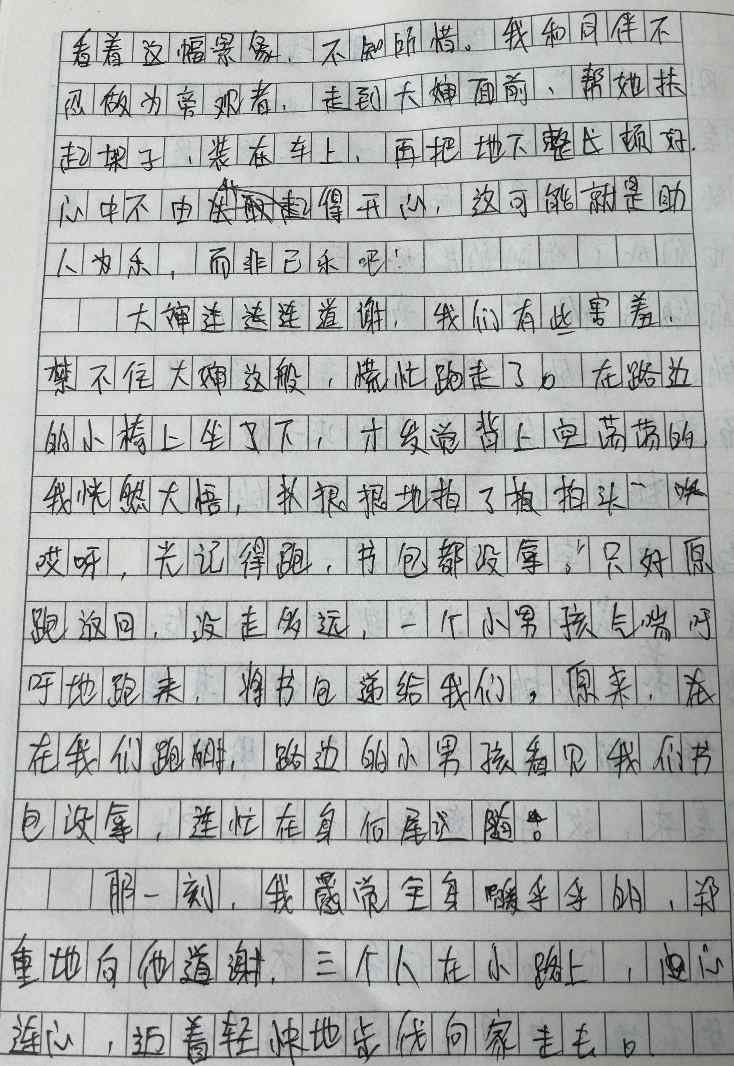 看着这幅景象，不知所惜。我和同伴不
忍做为旁观者，走到大婶面前，帮她扶
起架子，装在车上，再把地下整长顿好，
心中不由得开心，这可能就是助
人为乐，而非己乐吧！
大婶连连连道谢，我们有些害羞，
禁不住大婶这般，慌忙跑走了。在路边
的小椅上坐了下，才发觉背上空荡荡的
我恍然大悟，狠狠地拍了拍头“
哎呀，光记得跑，书包都没拿。”只好原
跑返回，没走多远，一个小男孩气喘吁
吁地跑来，将书包递给我们，原来，
在我们跑时，路边的小男孩看见我们书
包没拿，连忙在身后尾随。
那一刻，我感觉全身暖乎乎的，郑
重地向他道谢，三个人在小路上，心
连心，迈着轻快地步伐向家走去。